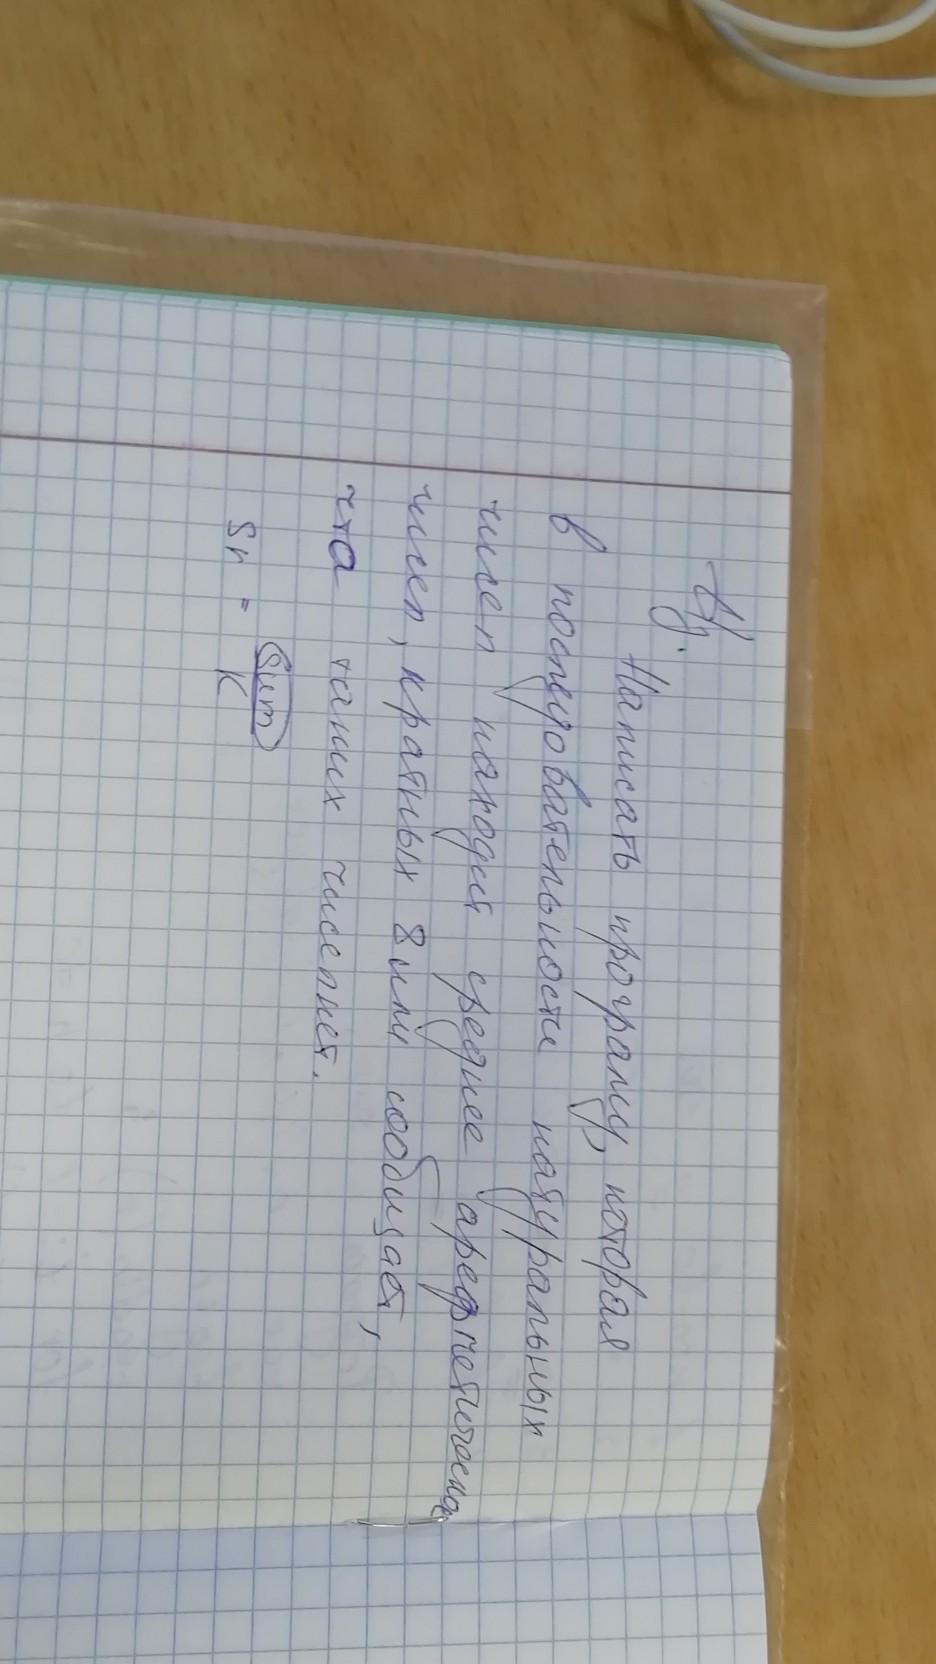 Ду.
Написать програму, которая
в последовательности натуральных
чисел находит среднее
чисел, кратных 8 или сообщает,
что таких чисел нет.
Sr = Sum
K